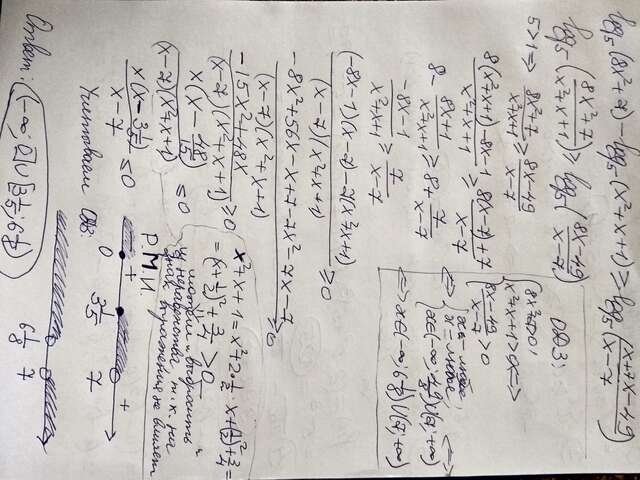 log₅(8x²+7) - log₅(x²+x+1) ≥ log₅(x/(x-7) + 7x-49)
log₅((8x²+7)/(x²+x+1)) ≥ log₅((8x-49)/(x-7))
5>1 ⇒ (8x²+7)/(x²+x+1) ≥ (8x-49)/(x-7)
(8(x²+x+1)-8x-1)/(x²+x+1) ≥ (8(x-7)+7)/(x-7)
8 - (8x+1)/(x²+x+1) ≥ 8 + 7/(x-7)
(-8x-1)/(x²+x+1) ≥ 7/(x-7)
((-8x-1)(x-7)-7(x²+x+1))/((x-7)(x²+x+1)) ≥ 0
(-8x²+56x-x+7-7x²-7x-7)/((x-7)(x²+x+1)) ≥ 0
(-15x²+48x)/((x-7)(x²+x+1)) ≥ 0
x(x-48/15)/((x-7)(x²+x+1)) ≤ 0
x(x-3 1/5)/(x-7) ≤ 0
ОДЗ:
8x²+7>0;
x²+x+1>0 <=>
(8x-49)/(x-7) > 0
<=> x = любое;
x = любое; <=>
x∈(-∞; 49/8)∪(7;+∞)
<=> x∈(-∞; 6 1/8)∪(7;+∞)
x²+x+1 = x²+2·1/2·x+(1/2)²+3/4 =
= (x+1/2)²+3/4 > 0
неравенства, т.к. на
знак
не влияет
Р.М.И.
+ +
0 3 1/5 7
Учитываем ОДЗ:
6 1/8 7
Ответ: (-∞; 0]∪[3 1/5; 6 1/8)